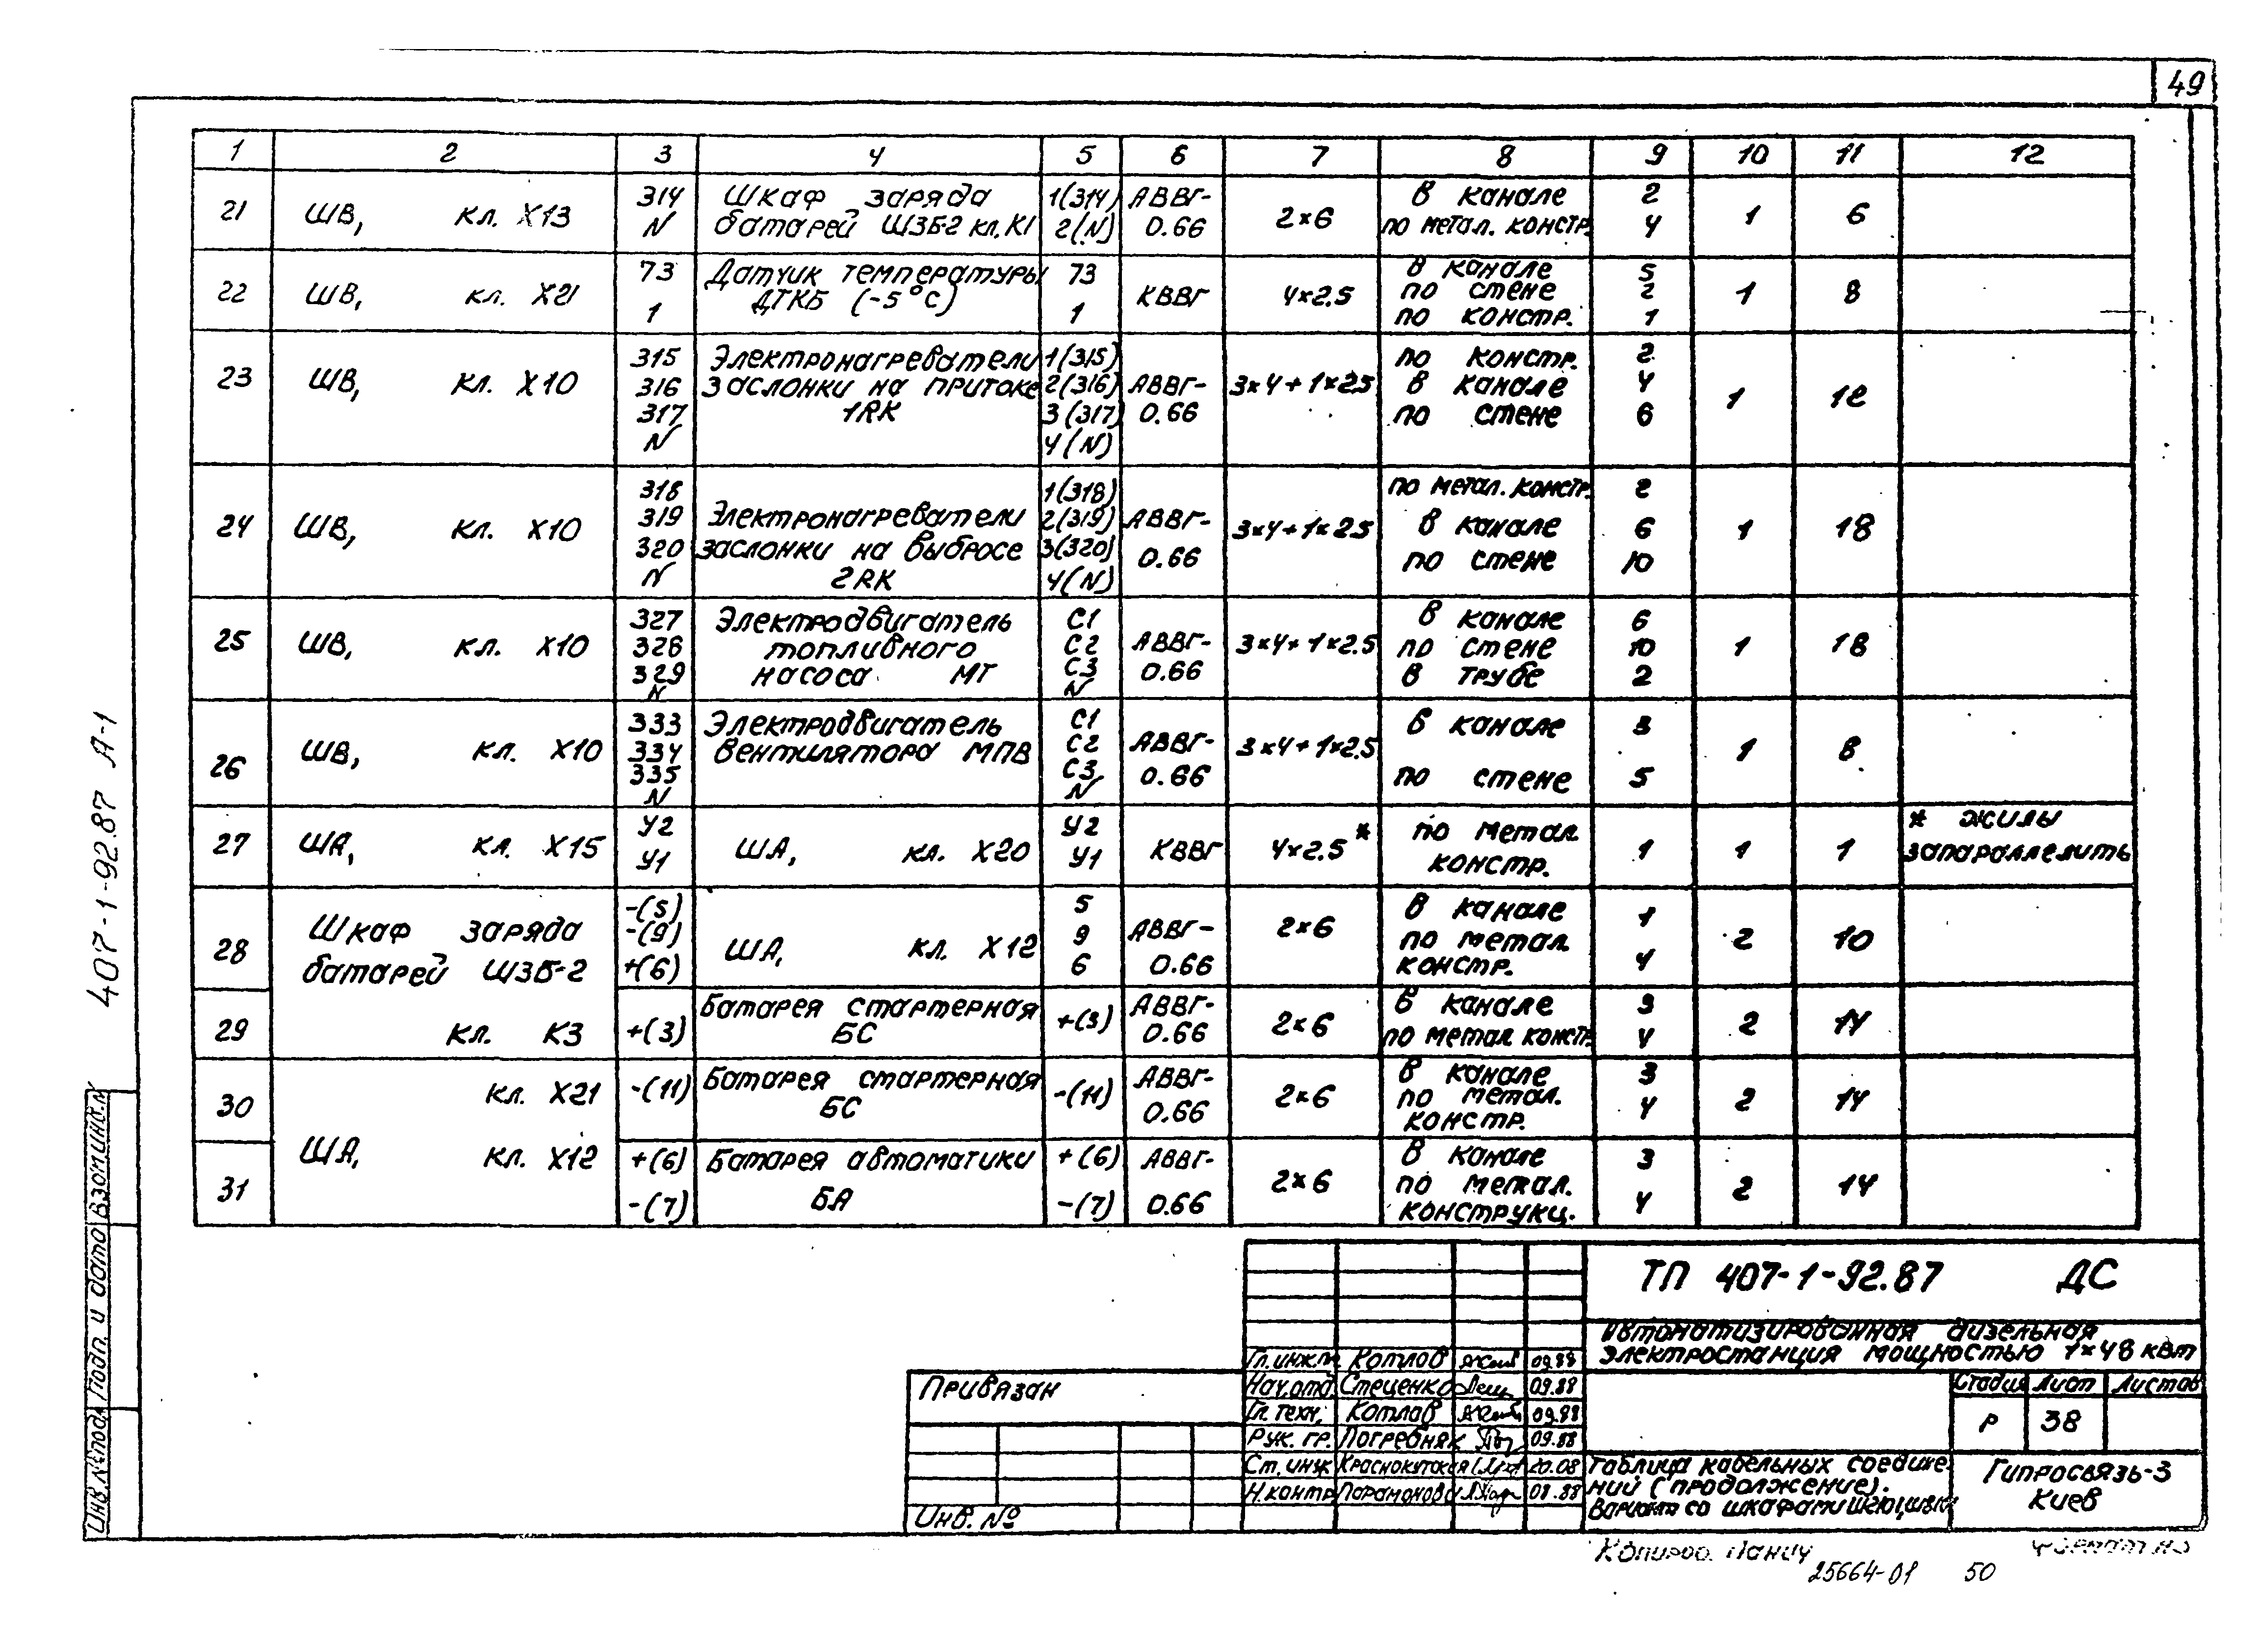 49
1 2 3 4 5 6 7 8 9 10 11 12
21 ШВ, кл. Х13 314 Шкаф заряда 1(314) АВВГ- 2×6 в канале 2 1 6
N батарей ШЗБ-2 кл. К1 2(N) 0.66 по метал. констр. 4
22 ШВ, кл. Х21 73 Датчик температуры 73 КВВГ 4×2.5 в канале 5 1 8
ДТКБ (-5°С) по стене 2
1 1 по констр. 1
23 ШВ, кл. Х10 315 Электронагреватели 1(315) АВВГ- 3×4+1×2.5 по констр. 2 1 12
316 заслонки на притоке 2(316) 0.66 в канале 4
317 1RK 3(317) по стене 6
N 4(N)
24 ШВ, кл. Х10 318 Электронагреватели 1(318) АВВГ- 3×4+1×2.5 по метал. констр. 2 1 18
319 заслонки на выбросе 2(319) 0.66 в канале 6
320 2RK 3(320) по стене 10
N 4(N)
25 ШВ, кл. Х10 327 Электродвигатель С1 АВВГ- 3×4+1×2.5 в канале 6 1 18
328 топливного С2 0.66 по стене 10
329 насоса МТ С3 в трубе 2
N N
26 ШВ, кл. Х10 333 Электродвигатель С1 АВВГ- 3×4+1×2.5 в канале 3 1 8
334 вентилятора МПВ С2 0.66
335 С3 по стене 5
N N
27 ША, кл. Х15 У2 ША, кл. Х20 У2 КВВГ 4×2.5* по метал 1 1 1 * жилы
У1 У1 констр. запараллелить
28 Шкаф заряда -(5) ША, кл. Х12 5 АВВГ- 2×6 в канале 1 2 10
батарей ШЗБ-2 -(9) 9 0.66 по метал. 4
+(6) 6 констр.
29 кл. К3 +(3) Батарея стартерная +(3) АВВГ- 2×6 в канале 3 2 14
БС 0.66 по метал констр. 4
30 кл. Х21 -(11) Батарея стартерная -(11) АВВГ- 2×6 в канале 3 2 14
БС 0.66 по метал. 4
констр.
31 ША, кл. Х12 +(6) Батарея автоматики +(6) АВВГ- 2×6 в канале 3 2 14
-(7) БА -(7) 0.66 по метал. 4
конструкц.
407-1-92.87 А-1
Взам инв.№
Подп. и дата
Инв.№ подл
ТП 407-1-92.87 ДС
Автоматизированная дизельная
электростанция мощностью 1×48 квт
Гл. инж. Котлов 09.88
Нач. отд. Стеценко 09.88
Гл. техн. Котлов 09.88
Рук. гр. Погребняк 09.88
Ст. инж Краснокутская 20.08
Н.контр. Парамонова 08.88
Стадия Лист Листов
Р 38
Таблица кабельных соедине-
ний (продолжение).
Вариант со шкафами
Гипросвязь-3
Киев
Привязан
Инв. №
Копиров. Формат А3
25664-01 50